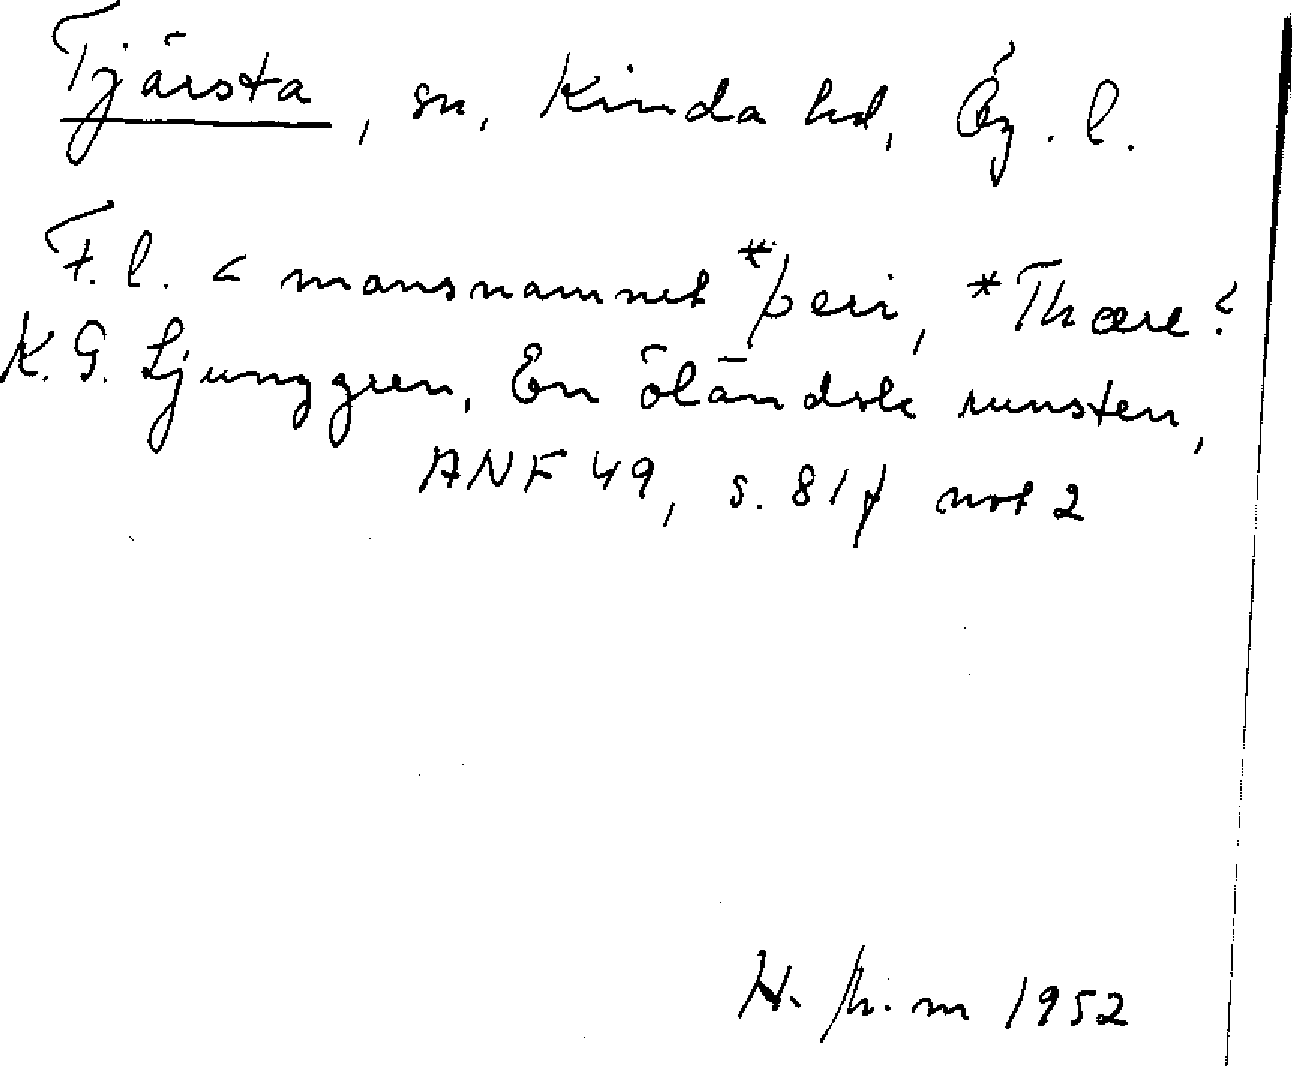 Tjärsta, sn, Kinda hd, Ög. l.
F. l. < mansnamnet *þeri, *Thære?
K. G. Ljunggren, En öländsk runsten,
ANF 49, s. 81f not 2
H. 1952